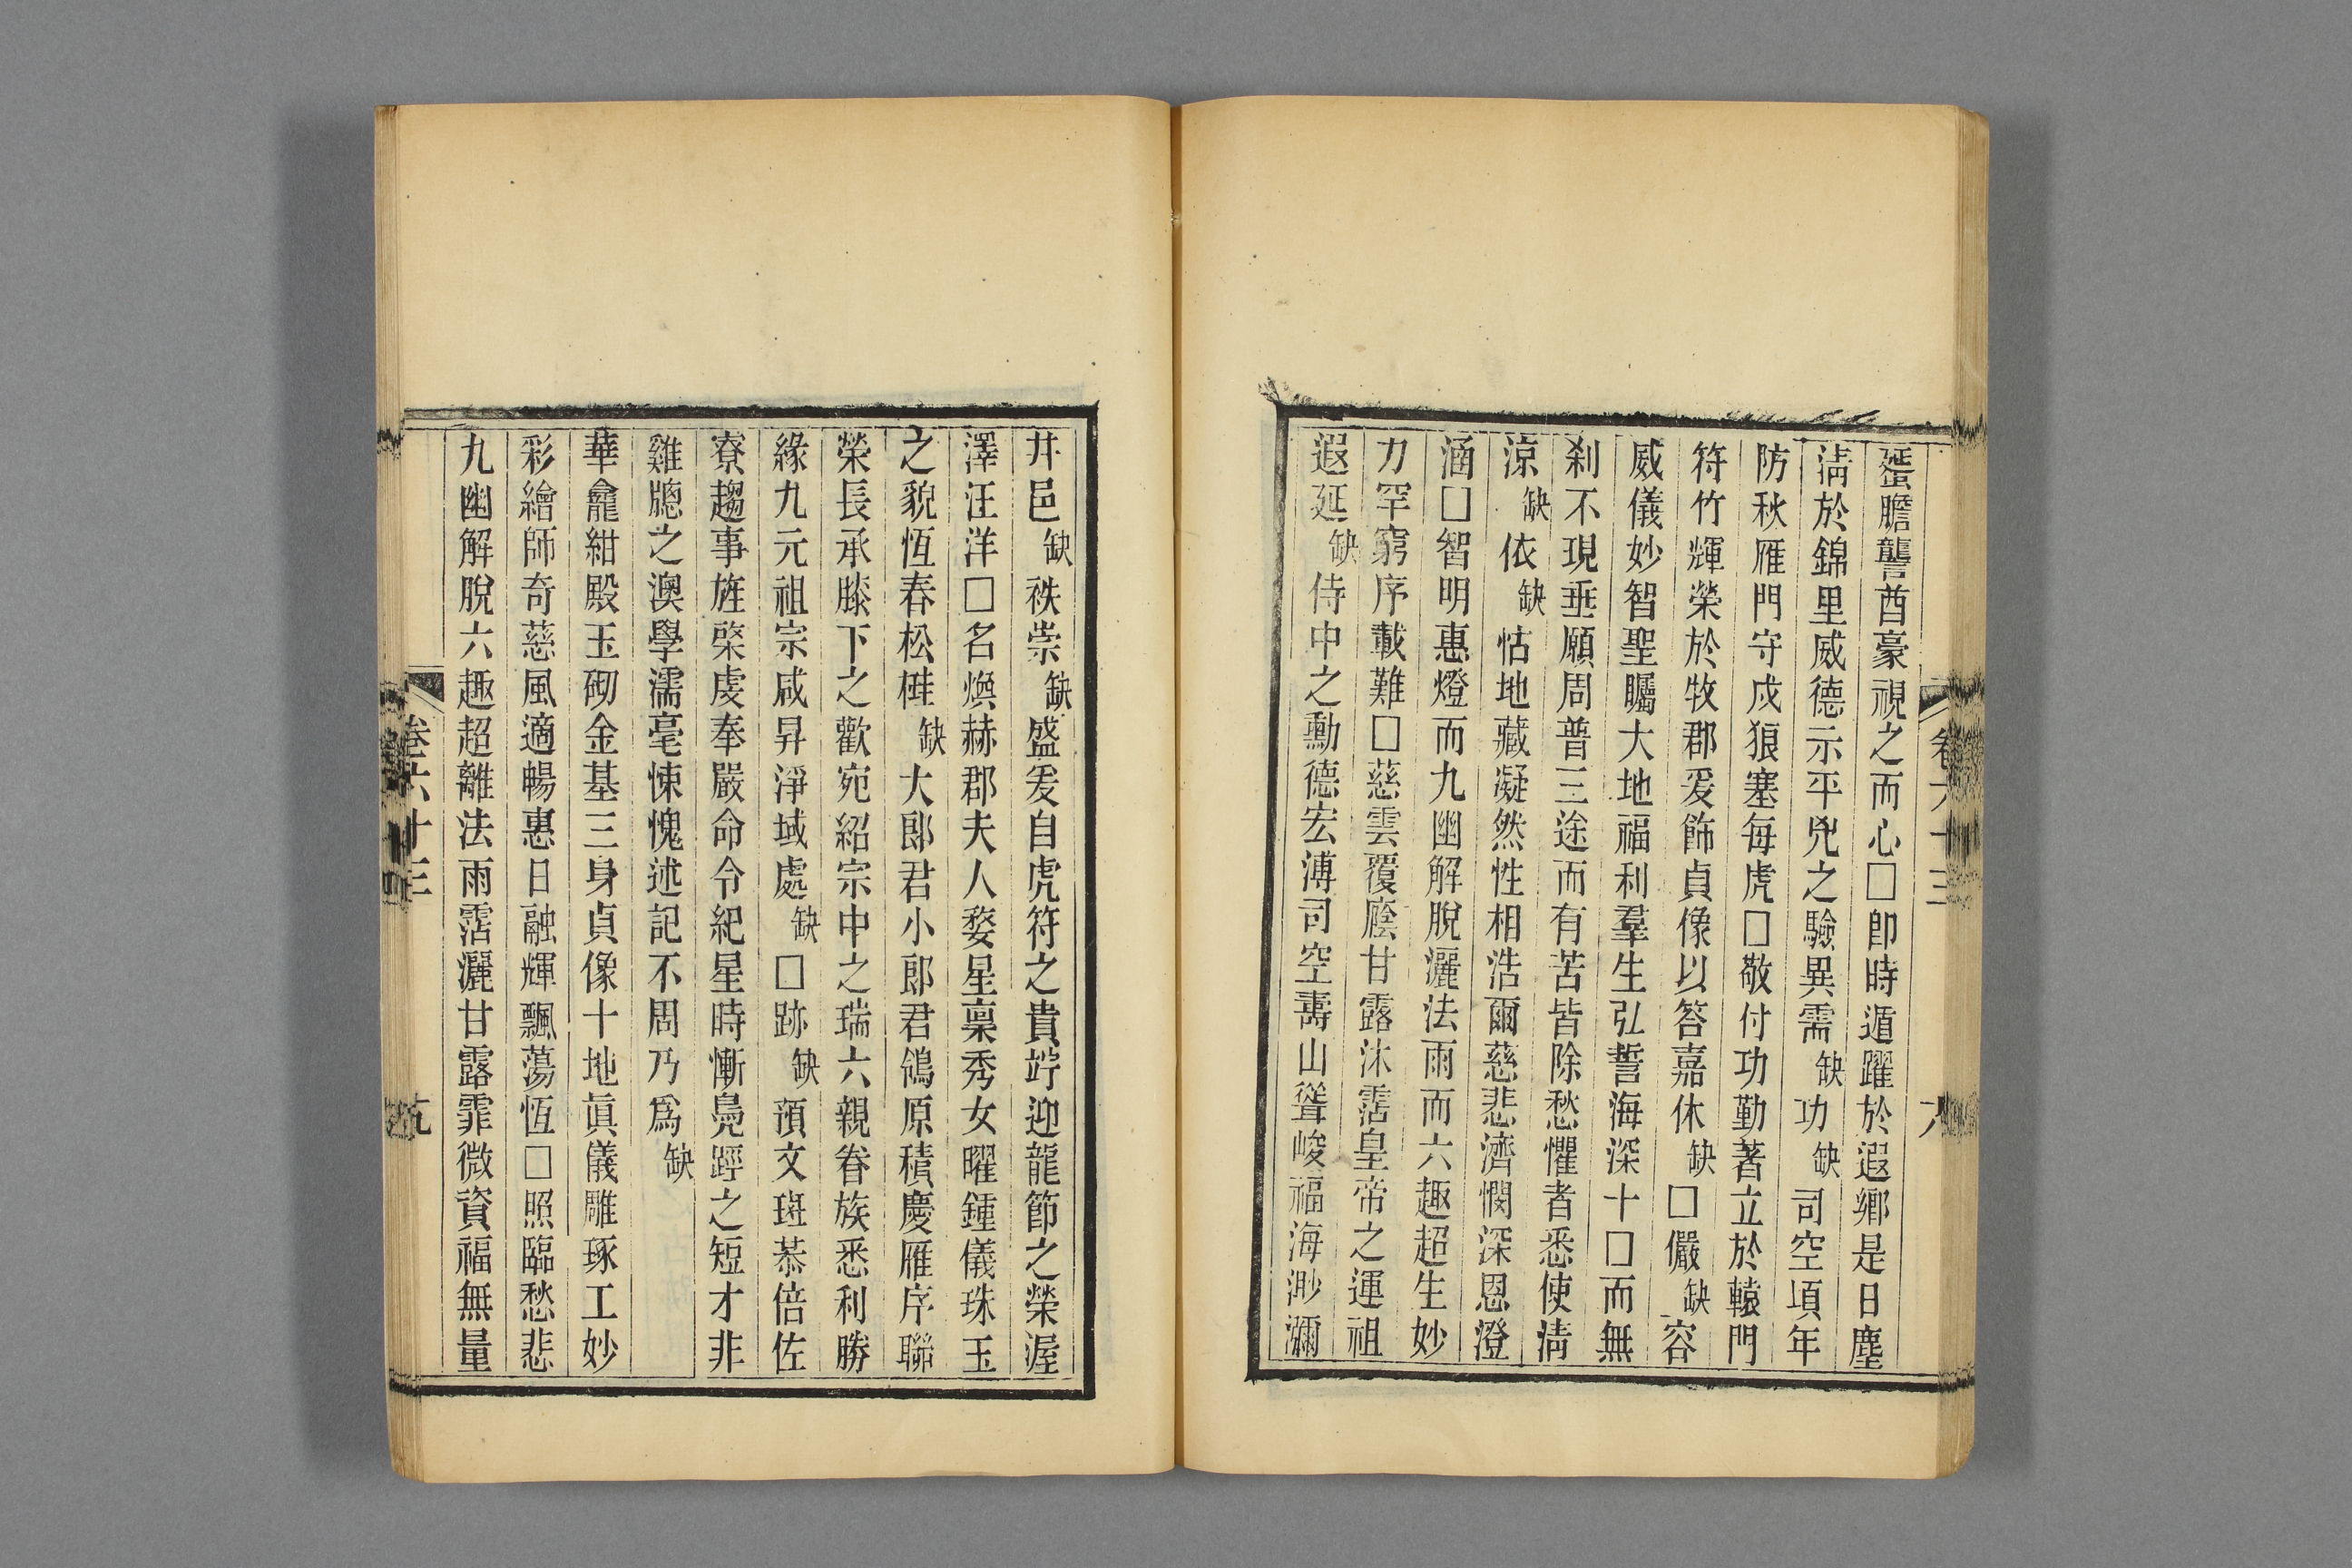 蜑蠻膽讋酋豪視之而心□卽時遁躍於遐鄉是日塵
淸於錦里威德示平兇之驗異需缺功缺司空項年
防秋雁門守戍狼塞每虎□敬付功勤著立於轅門
符竹輝榮於牧郡爰飾貞像以答嘉休缺□儼缺容
威儀妙智聖矚大地福利羣生弘誓海深十□而無
刹不現垂願周普三途而有苦皆除愁懼者悉使淸
涼缺依缺怙地藏凝然性相浩爾慈悲濟憫深恩澄
涵□智明惠燈而九幽解脫灑法雨而六趣超生妙
力罕窮序載難□慈雲覆廕甘露沐霑皇帝之運祖
遐延缺侍中之勳德宏溥司空壽山聳峻福海渺瀰
卷六十三
八
井邑缺祑崇缺盛爰自虎符之貴竚迎龍節之榮渥
澤汪洋□名煥赫郡夫人婺星稟秀女曜鍾儀珠玉
之貌恆春松桂缺大郎君小郎君鴒原積慶雁序聯
榮長承膝下之歡宛紹宗中之瑞六親眷族悉利勝
緣九元祖宗咸昇淨域處缺□跡缺預文班恭倍佐
寮趨事旌棨虔奉嚴命令紀星時慚鳧踁之短才非
雞牕之澳學濡毫悚愧述記不周乃爲缺
華龕紺殿玉砌金基三身貞像十地眞儀雕琢工妙
彩繪師奇慈風適暢惠日融輝飄蕩恆□照臨愁悲
九幽解脫六趣超離法雨霑灑甘露霏微資福無量
卷六十三
九